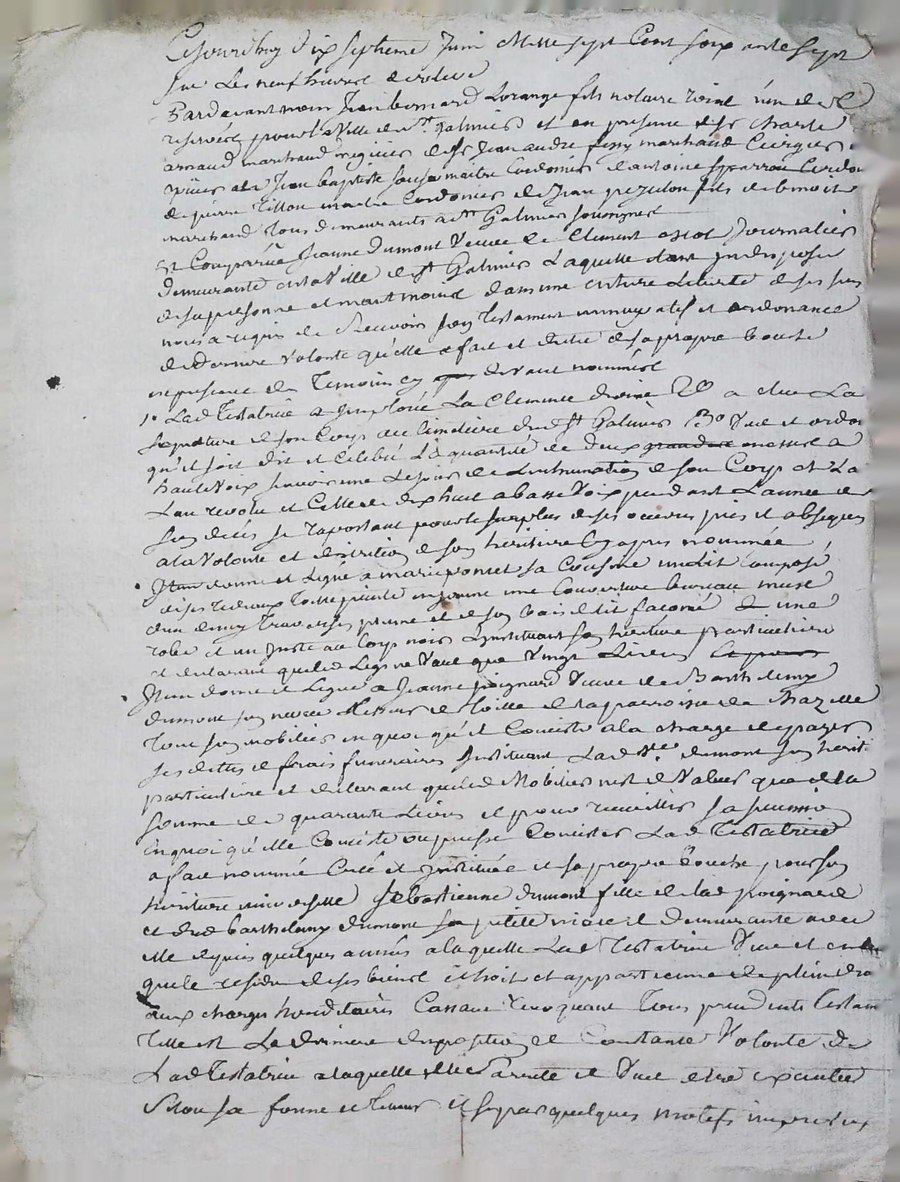 Cejourdhuy dix septieme Juin Mille sept Cent soix ante sept
sur Les neuf heures
Pardevant nous Jean bernard Lorange fils notaire roial
reservé pour la Ville de st Galmier et en presence de sr Charle
arnaud marchand megicier de sr Jean andre marchand Ciergier
Jean baptiste maitre Cordonier antoine Cordon
de pierre Tillon maitre Cordonier de Jean fils de benoit
marchand Tous demeurants a st Galmier soussignes
Est Comparüe Jeanne dumont Veuve de Clement Journalier
demeurante en la Ville de st Galmier Laquelle etant indisposée
de sa personne et neantmoins dans une entiere Liberté de ses sens
nous a requis de Recevoir son Testament nuncupatif et ordonance
de derniere Volonté qu'elle a fait et dicté de sa propre bouche
en presence des Temoins cy devant nommés
1° Lad Testatrice a imploré La Clemence divine 2° a elue La
sepulture de son Corps au Cimetiere dud st Galmier 3° Veut et ordon
qu'il soit dit et Celebré La quantité de deux grandes messes a
haute Voix scavoir une Le jour de Linhumation de son Corp et La
L'an revolu et Celle de dix huit a basse Voix pendant L'année de
son decès se raportant pour le surplus de ses oeuvres pies et obseques
a la Volonté et discretion de son heritiere cy apres nommée
Item donne et Legue a marie poncet sa Cousine un Lit Composé
de ses rideaux Toile peinte en jaune une Couverture bureau
d'un Traversier plume et de son bois de lit façoné une
robe et un Juste au Corp noir L'instituant son heritiere particuliere
et declarant que led Legs ne Vaut que Vingt Livres
Item donne et Legue a Jeanne poignard Veuve de Barthelemy
dumont son neveu de la paroisse de Chazelle
Tout son mobilier en quoi qu'il Consiste a la charge de payer
ses dettes et frais funeraires Instituant Lad ve dumont son herit
particuliere et declarant que led Mobilier n'est de Valeur que de la
somme de quarante Livres et pour recueillir sa
en quoi qu'elle Consiste ou puisse Consister Lad Testatrice
a fait nommé Créé et institué de sa propre bouche pour son
heritiere universelle Sebastienne dumont fille de lad poignard
et dud barthelemy dumont sa petite niece demeurante avec
elle depuis quelques années a laquelle Lad Testatrice Veut et
que le residu de ses biens echoit et appartienne de plein dro
aux charges hereditaires Cassant revoquant Tous precedents Testam
Telle est La derniere disposition et Constante Volonté de
Lad Testatrice a laquelle elle et Veut etre executée
selon sa forme et teneur et si par quelques motifs imprevus